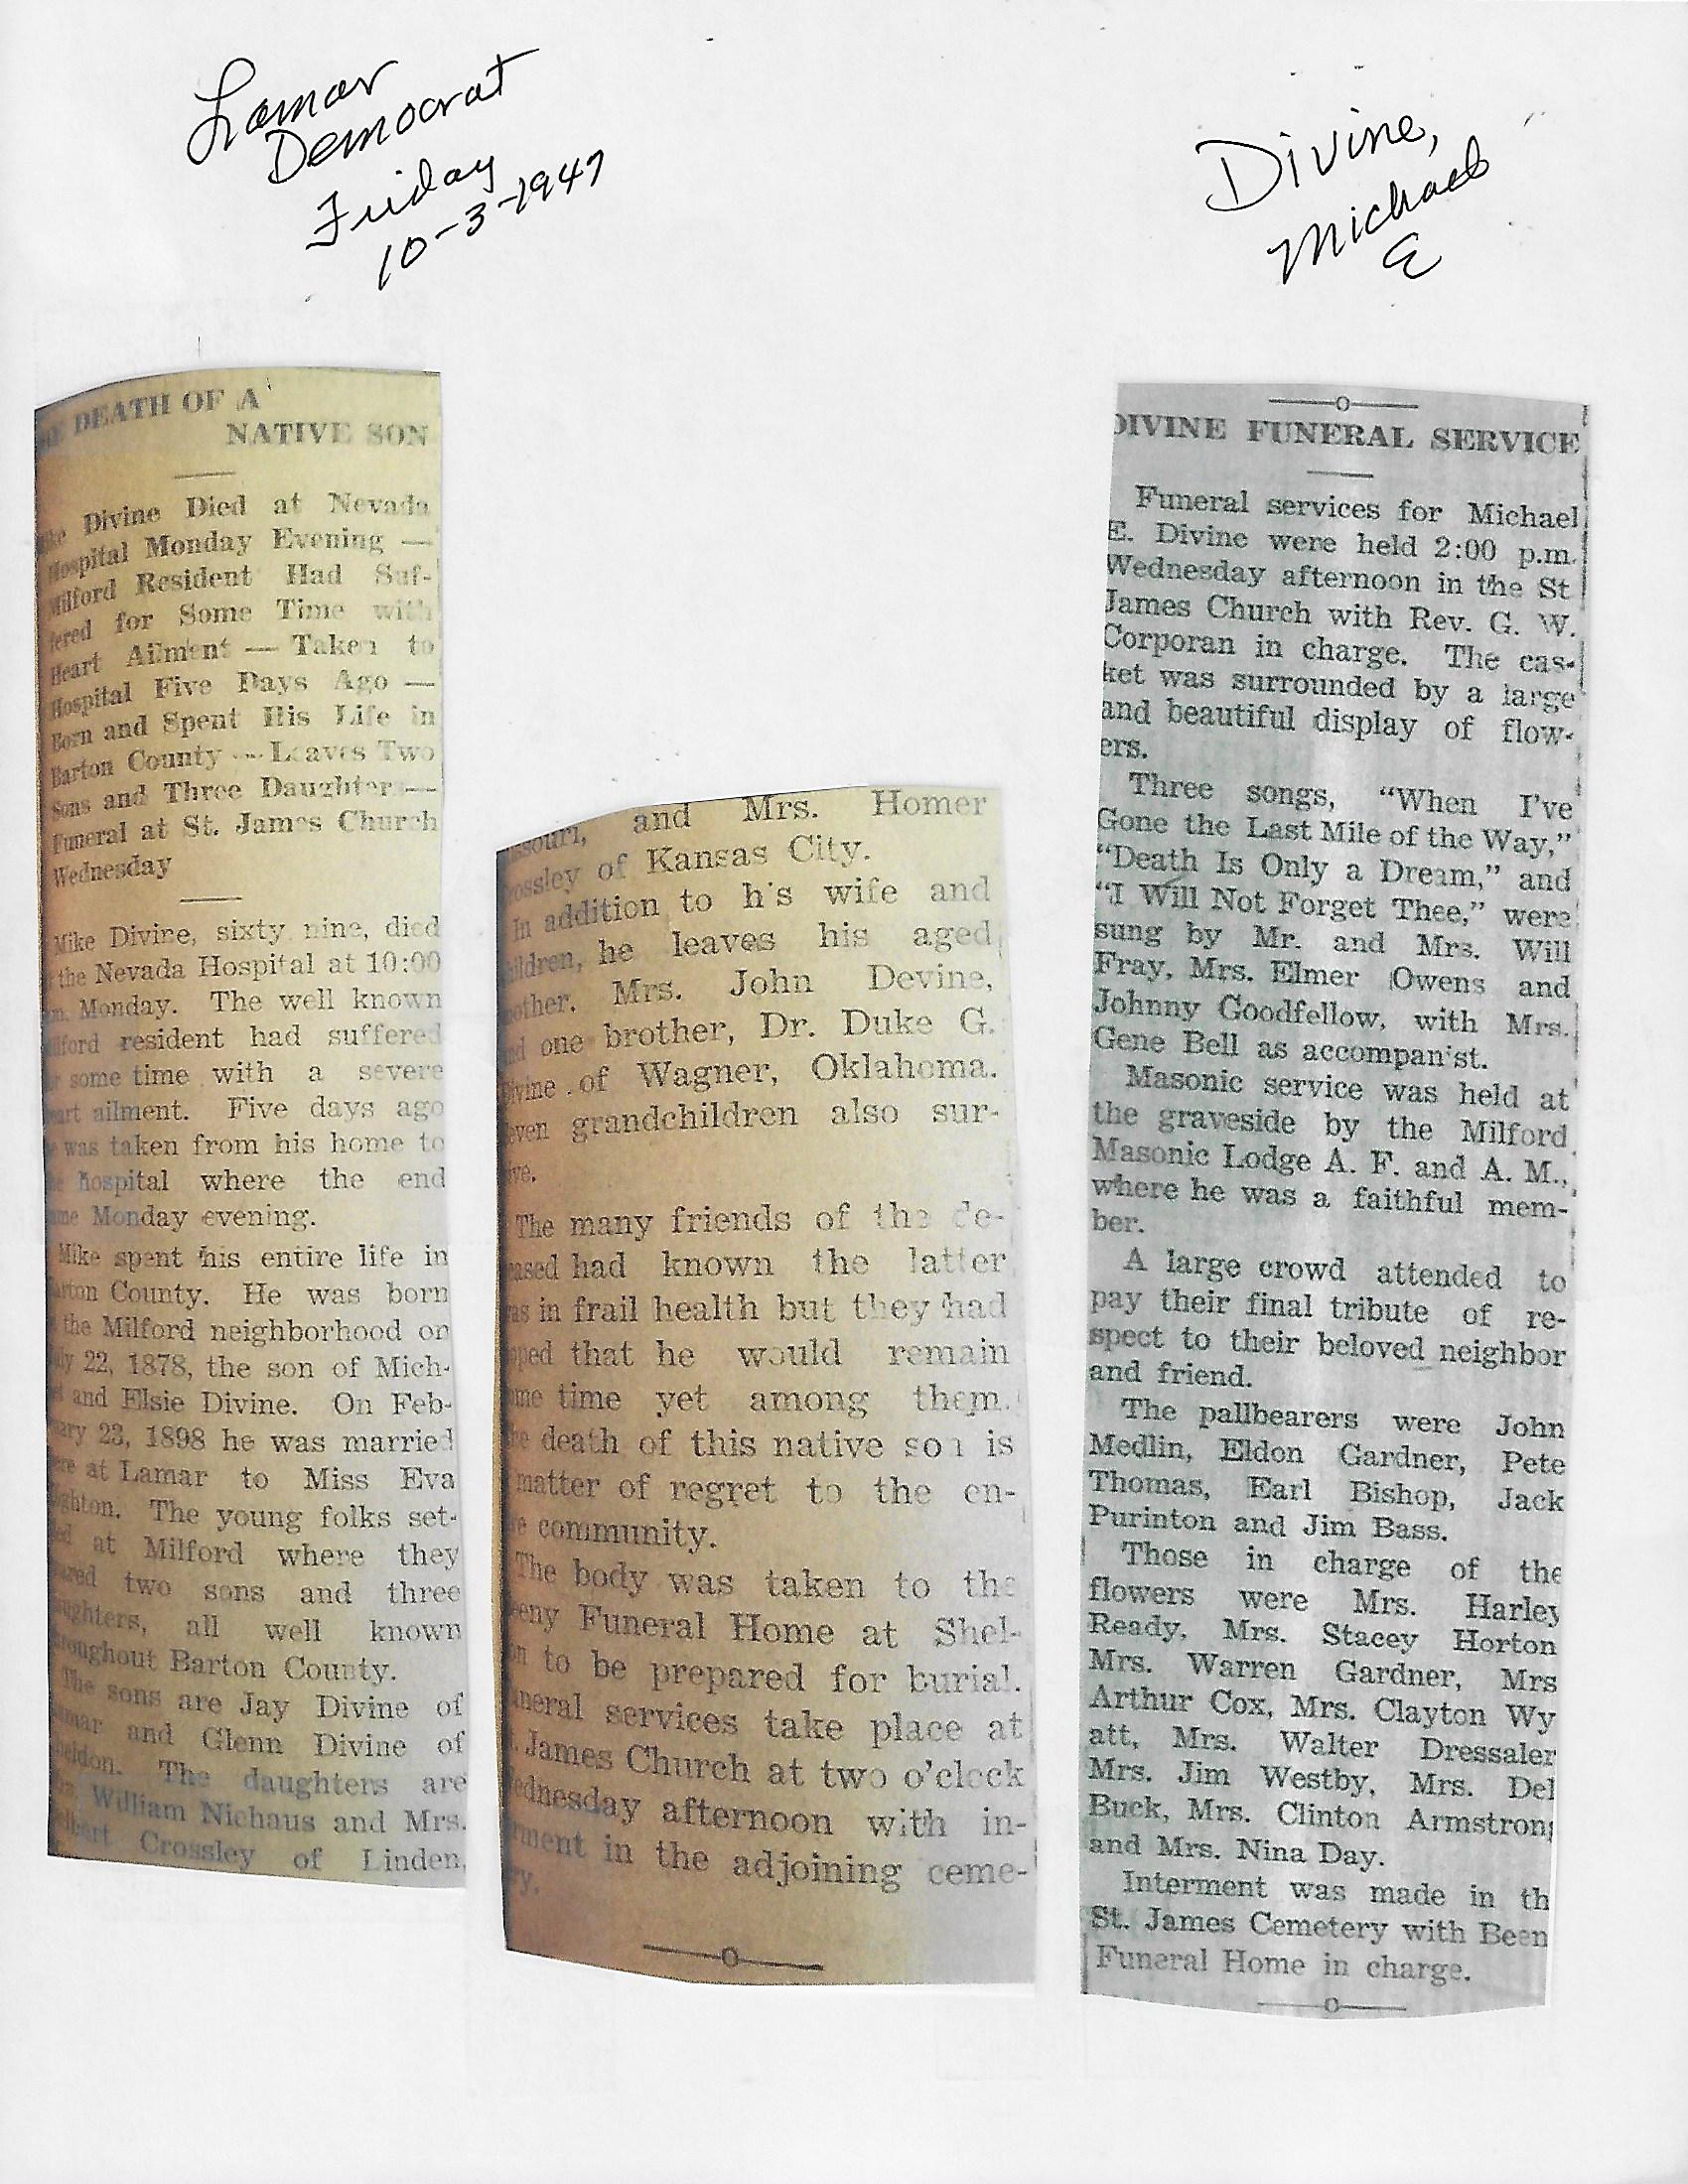 Lamar
Democrat
Friday
10-3-1947
Divine,
Michael
E
DEATH OF A
NATIVE SON
Divine Died at Nevada
Hospital Monday Evening —
Milford Resident Had Suf-
fered for Some Time with
Heart Ailment — Taken to
Hospital Five Days Ago —
Born and Spent His Life in
Barton County — Leaves Two
Sons and Three Daughters —
Funeral at St. James Church
Wednesday
Mike Divine, sixty nine, died
the Nevada Hospital at 10:00
m. Monday. The well known
lford resident had suffered
some time with a severe
art ailment. Five days ago
was taken from his home to
hospital where the end
me Monday evening.
Mike spent his entire life in
arton County. He was born
the Milford neighborhood on
ly 22, 1878, the son of Mich-
and Elsie Divine. On Feb-
ary 23, 1898 he was married
ere at Lamar to Miss Eva
ighton. The young folks set-
ed at Milford where they
ared two sons and three
ughters, all well known
roughout Barton County.
The sons are Jay Divine of
amar and Glenn Divine of
heldon. The daughters are
William Niehaus and Mrs.
Crossley of Linden,
ssouri, and Mrs. Homer
rossley of Kansas City.
In addition to his wife and
ildren, he leaves his aged
other, Mrs. John Devine,
nd one brother, Dr. Duke G.
ivine of Wagner, Oklahoma.
even grandchildren also sur-
ive.
The many friends of the de-
eased had known the latter
as in frail health but they had
oped that he would remain
ome time yet among them.
he death of this native son is
matter of regret to the en-
re community.
The body was taken to the
eny Funeral Home at Shel-
on to be prepared for burial.
uneral services take place at
. James Church at two o'clock
ednesday afternoon with in-
rment in the adjoining ceme-
ry.
DIVINE FUNERAL SERVICE
Funeral services for Michael
E. Divine were held 2:00 p.m.
Wednesday afternoon in the St
James Church with Rev. G. W.
Corporan in charge. The cas-
ket was surrounded by a large
and beautiful display of flow-
ers.
Three songs, "When I've
Gone the Last Mile of the Way,"
"Death Is Only a Dream," and
"I Will Not Forget Thee," were
sung by Mr. and Mrs. Will
Fray, Mrs. Elmer Owens and
Johnny Goodfellow, with Mrs.
Gene Bell as accompanist.
Masonic service was held at
the graveside by the Milford
Masonic Lodge A. F. and A. M.,
where he was a faithful mem-
ber.
A large crowd attended to
pay their final tribute of re-
spect to their beloved neighbor
and friend.
The pallbearers were John
Medlin, Eldon Gardner, Pete
Thomas, Earl Bishop, Jack
Purinton and Jim Bass.
Those in charge of the
flowers were Mrs. Harley
Ready, Mrs. Stacey Horton
Mrs. Warren Gardner, Mrs
Arthur Cox, Mrs. Clayton Wy
att, Mrs. Walter Dressaler
Mrs. Jim Westby, Mrs. Del
Buck, Mrs. Clinton Armstrong
and Mrs. Nina Day.
Interment was made in th
St. James Cemetery with Been
Funeral Home in charge.